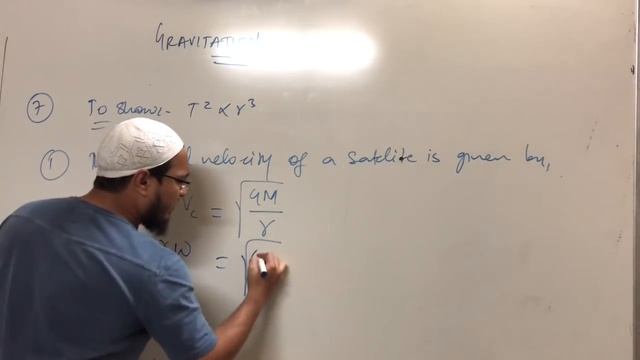 GRAVITATION
⑦ To show:- T² ∝ r³
① velocity of a satelite is given by,
V꜀ = √(GM/r)
ω = √